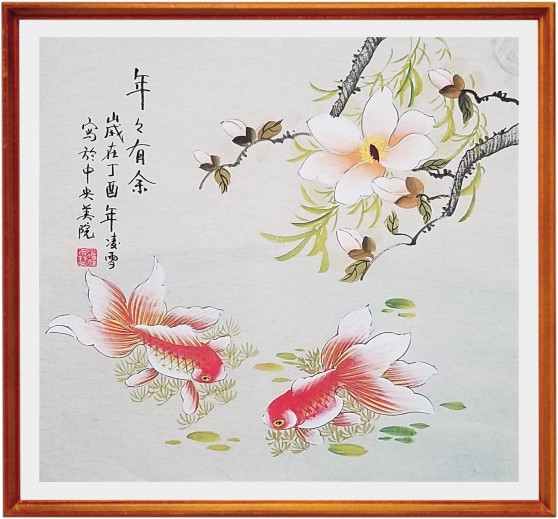 年々有余
岁在丁酉年凌雪
写於中央美院